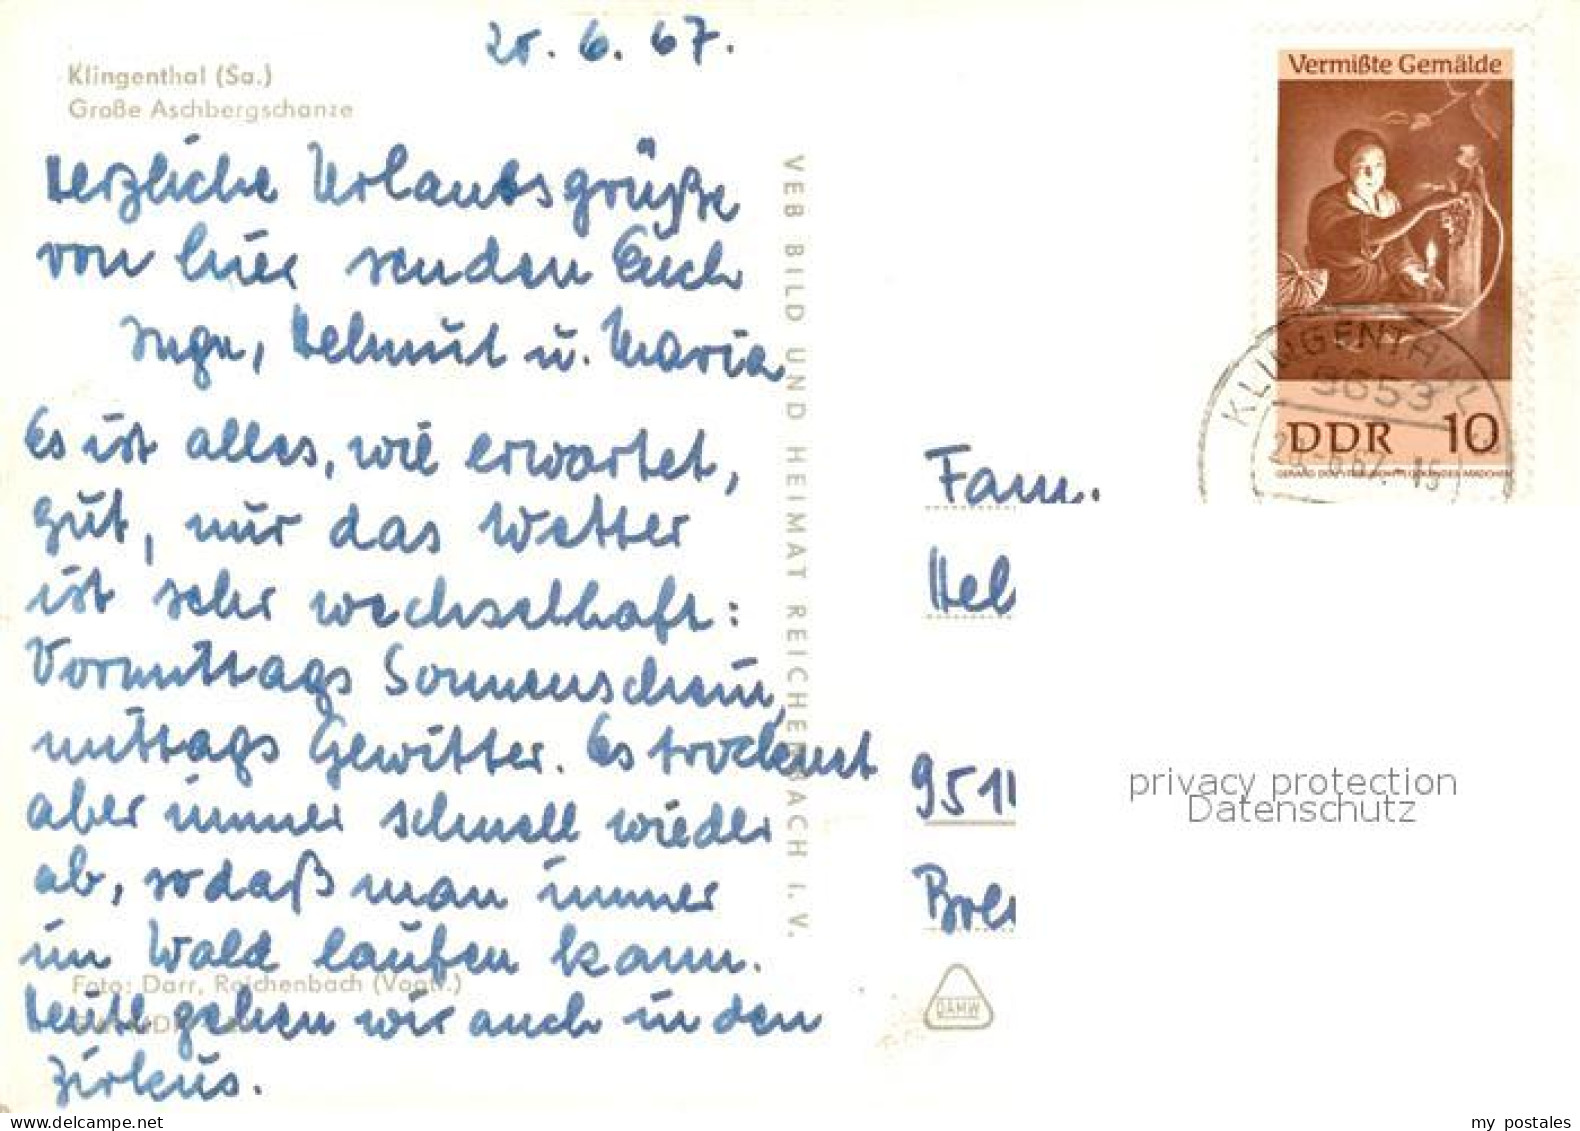 20. 6. 67.
Klingenthal (Sa.)
Große Aschbergschanze
Herzliche Urlaubsgrüße
von hier senden Euch
Inge, Helmut u. Maria
Es ist alles, wie erwartet,
gut, nur das Wetter
ist sehr wechselhaft:
Vormittags Sonnenschein,
mittags Gewitter. Es trocknet
aber immer schnell wieder
ab, so daß man immer
im Wald laufen kann.
Heute gehen wir auch in den
Zirkus.
Foto: Darr, Reichenbach (Vogtl.)
VEB BILD UND HEIMAT REICHENBACH I. V.
Vermißte Gemälde
DDR 10
KLINGENTHAL
9653
Fam.
Hel
951
DAMW
privacy protection
Datenschutz
my postales